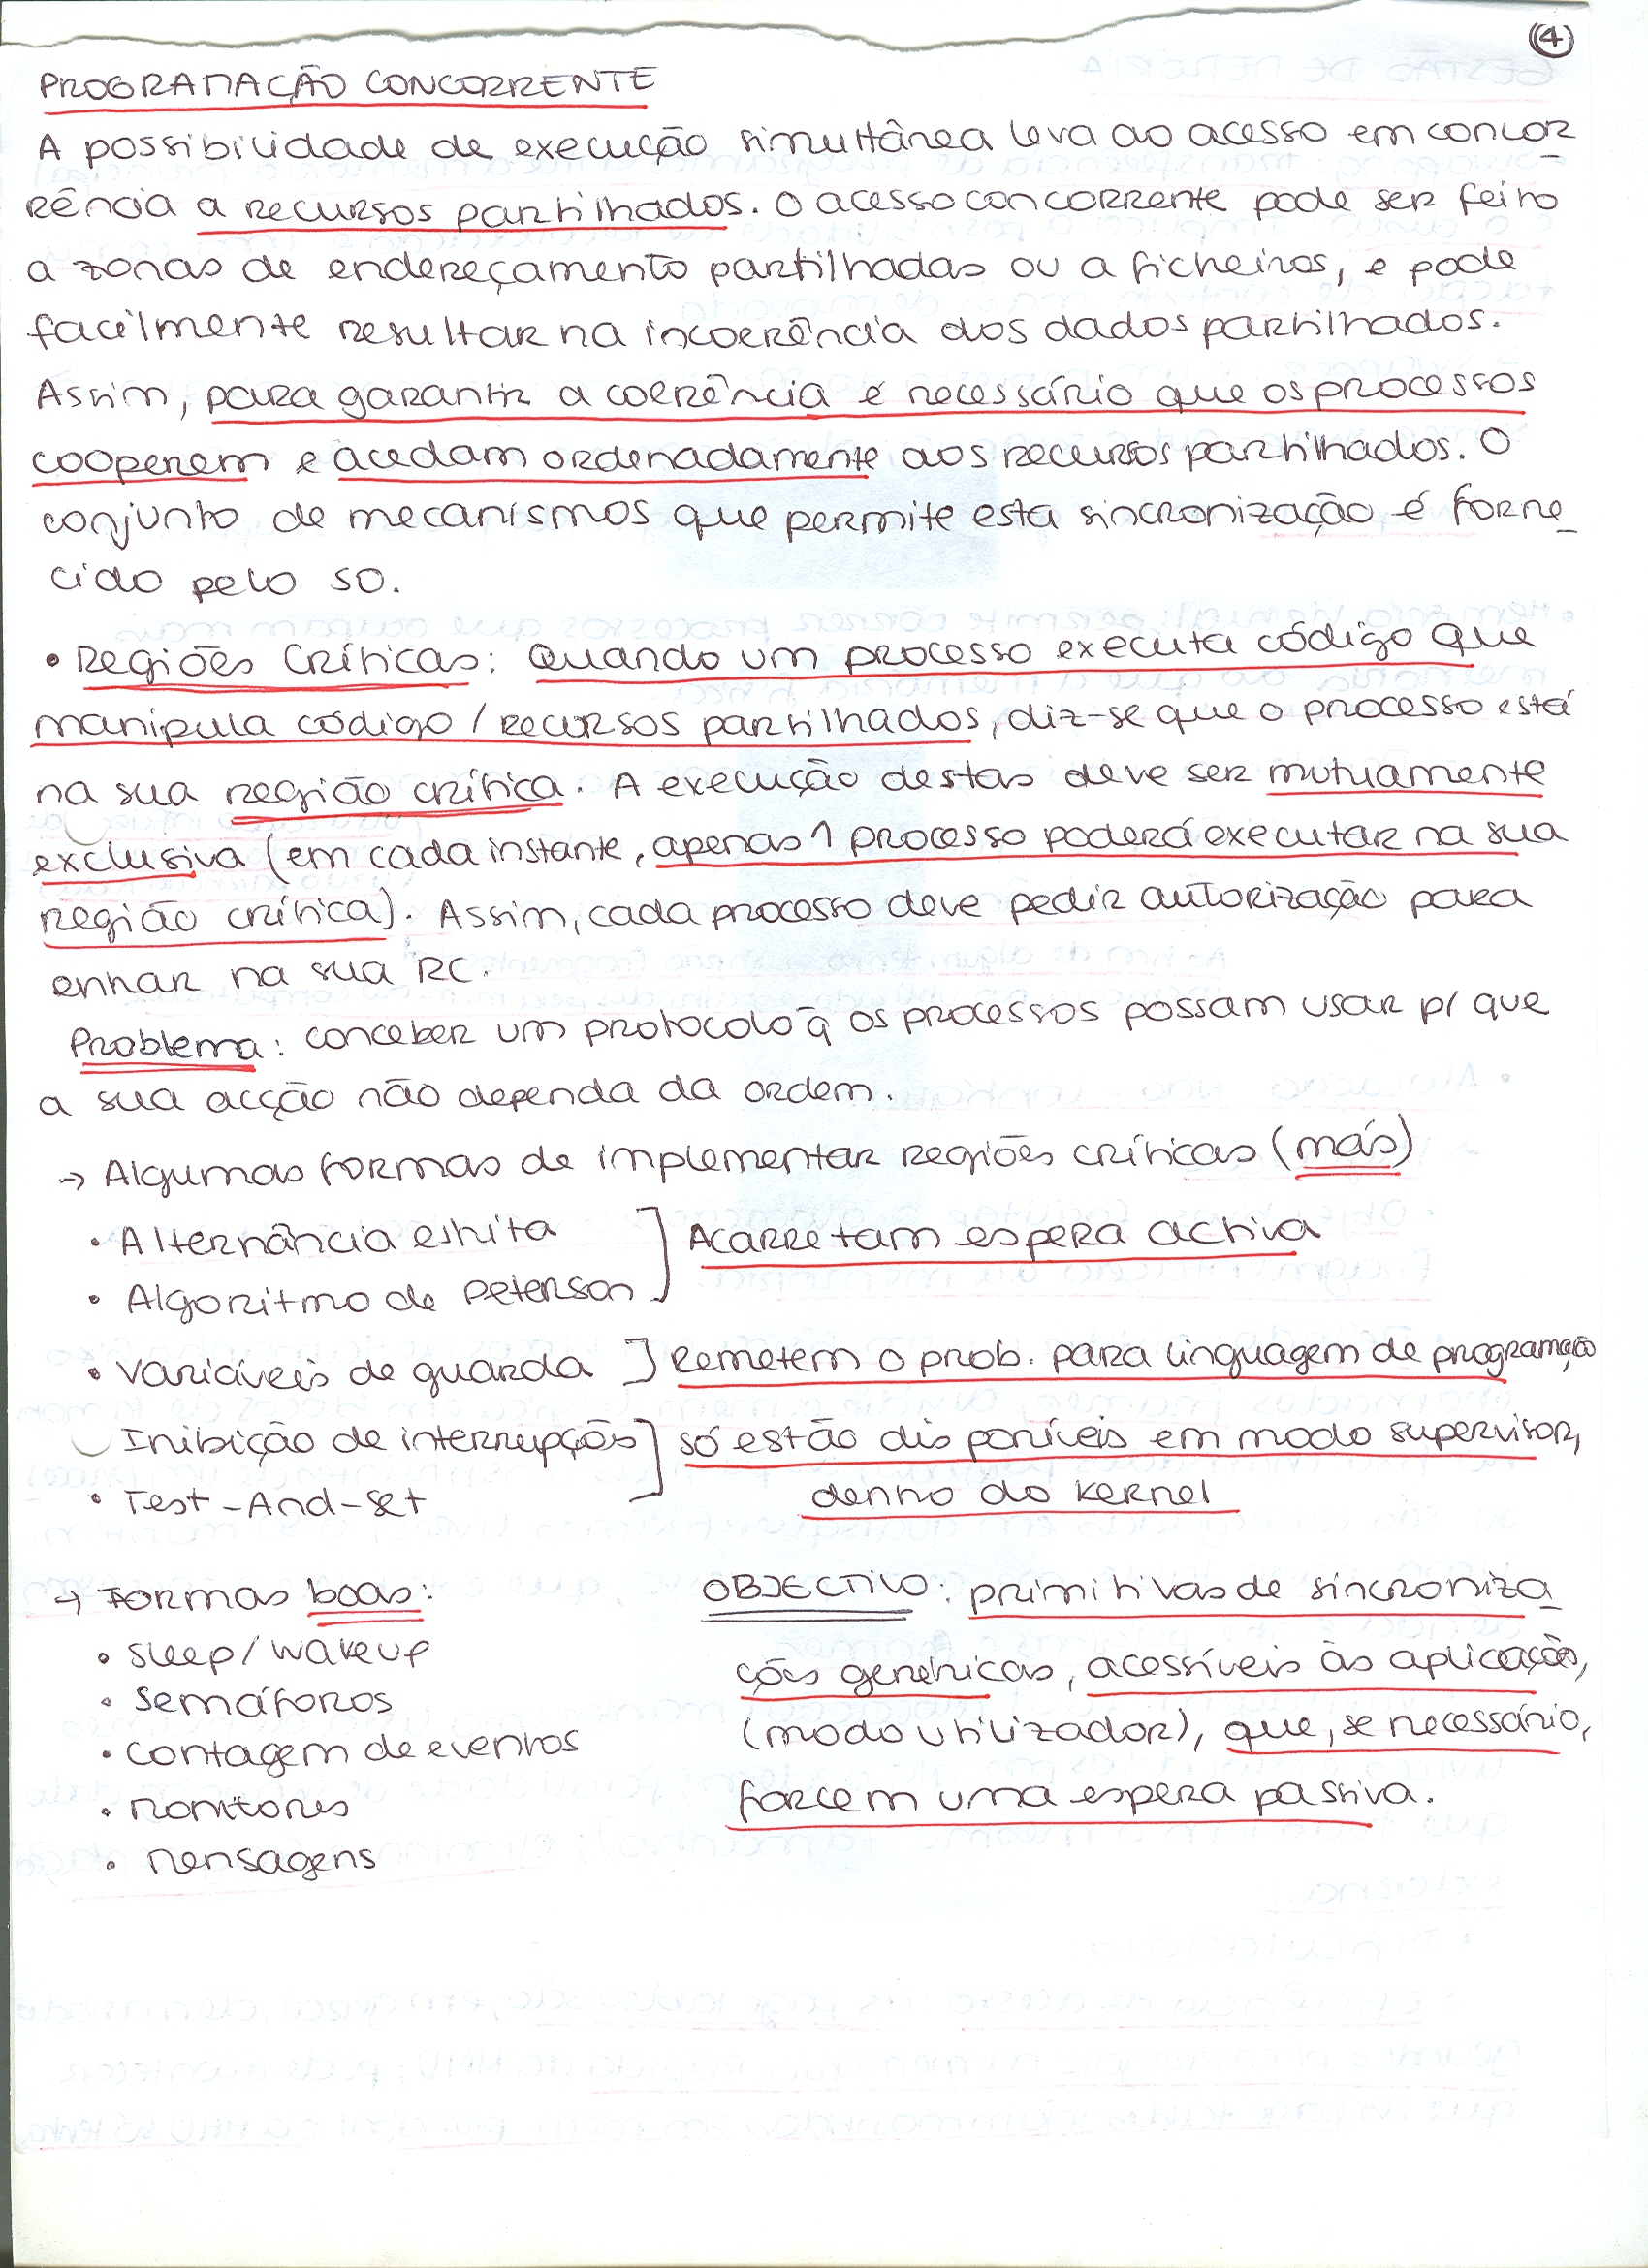 (4)
PROGRAMAÇÃO CONCORRENTE
A possibilidade de execução simultânea leva ao acesso em concor_
rência a recursos partilhados. O acesso concorrente pode ser feito
a zonas de endereçamento partilhadas ou a ficheiros, e pode
facilmente resultar na incoerência dos dados partilhados.
Assim, para garantir a coerência é necessário que os processos
cooperem e acedam ordenadamente aos recursos partilhados. O
conjunto de mecanismos que permite esta sincronização é forne_
cido pelo SO.
• Regiões Críticas: Quando um processo executa código que
manipula código / recursos partilhados, diz-se que o processo está
na sua região crítica. A execução destas deve ser mutuamente
exclusiva (em cada instante, apenas 1 processo poderá executar na sua
região crítica). Assim, cada processo deve pedir autorização para
entrar na sua RC.
Problema: conceber um protocolo q̃ os processos possam usar p/ que
a sua acção não dependa da ordem.
→ Algumas formas de implementar regiões críticas (más)
• Alternância estrita
• Algoritmo de Peterson ] Acarretam espera activa
• Variáveis de guarda ] Remetem o prob. para linguagem de programação
Inibição de interrupções ] só estão disponíveis em modo supervisor,
• Test-And-Set dentro do kernel
→ Formas boas:
• Sleep/Wakeup
• Semáforos
• Contagem de eventos
• Monitores
• Mensagens
OBJECTIVO: primitivas de sincroniza_
ções genéricas, acessíveis às aplicações,
(modo utilizador), que, se necessário,
forcem uma espera passiva.